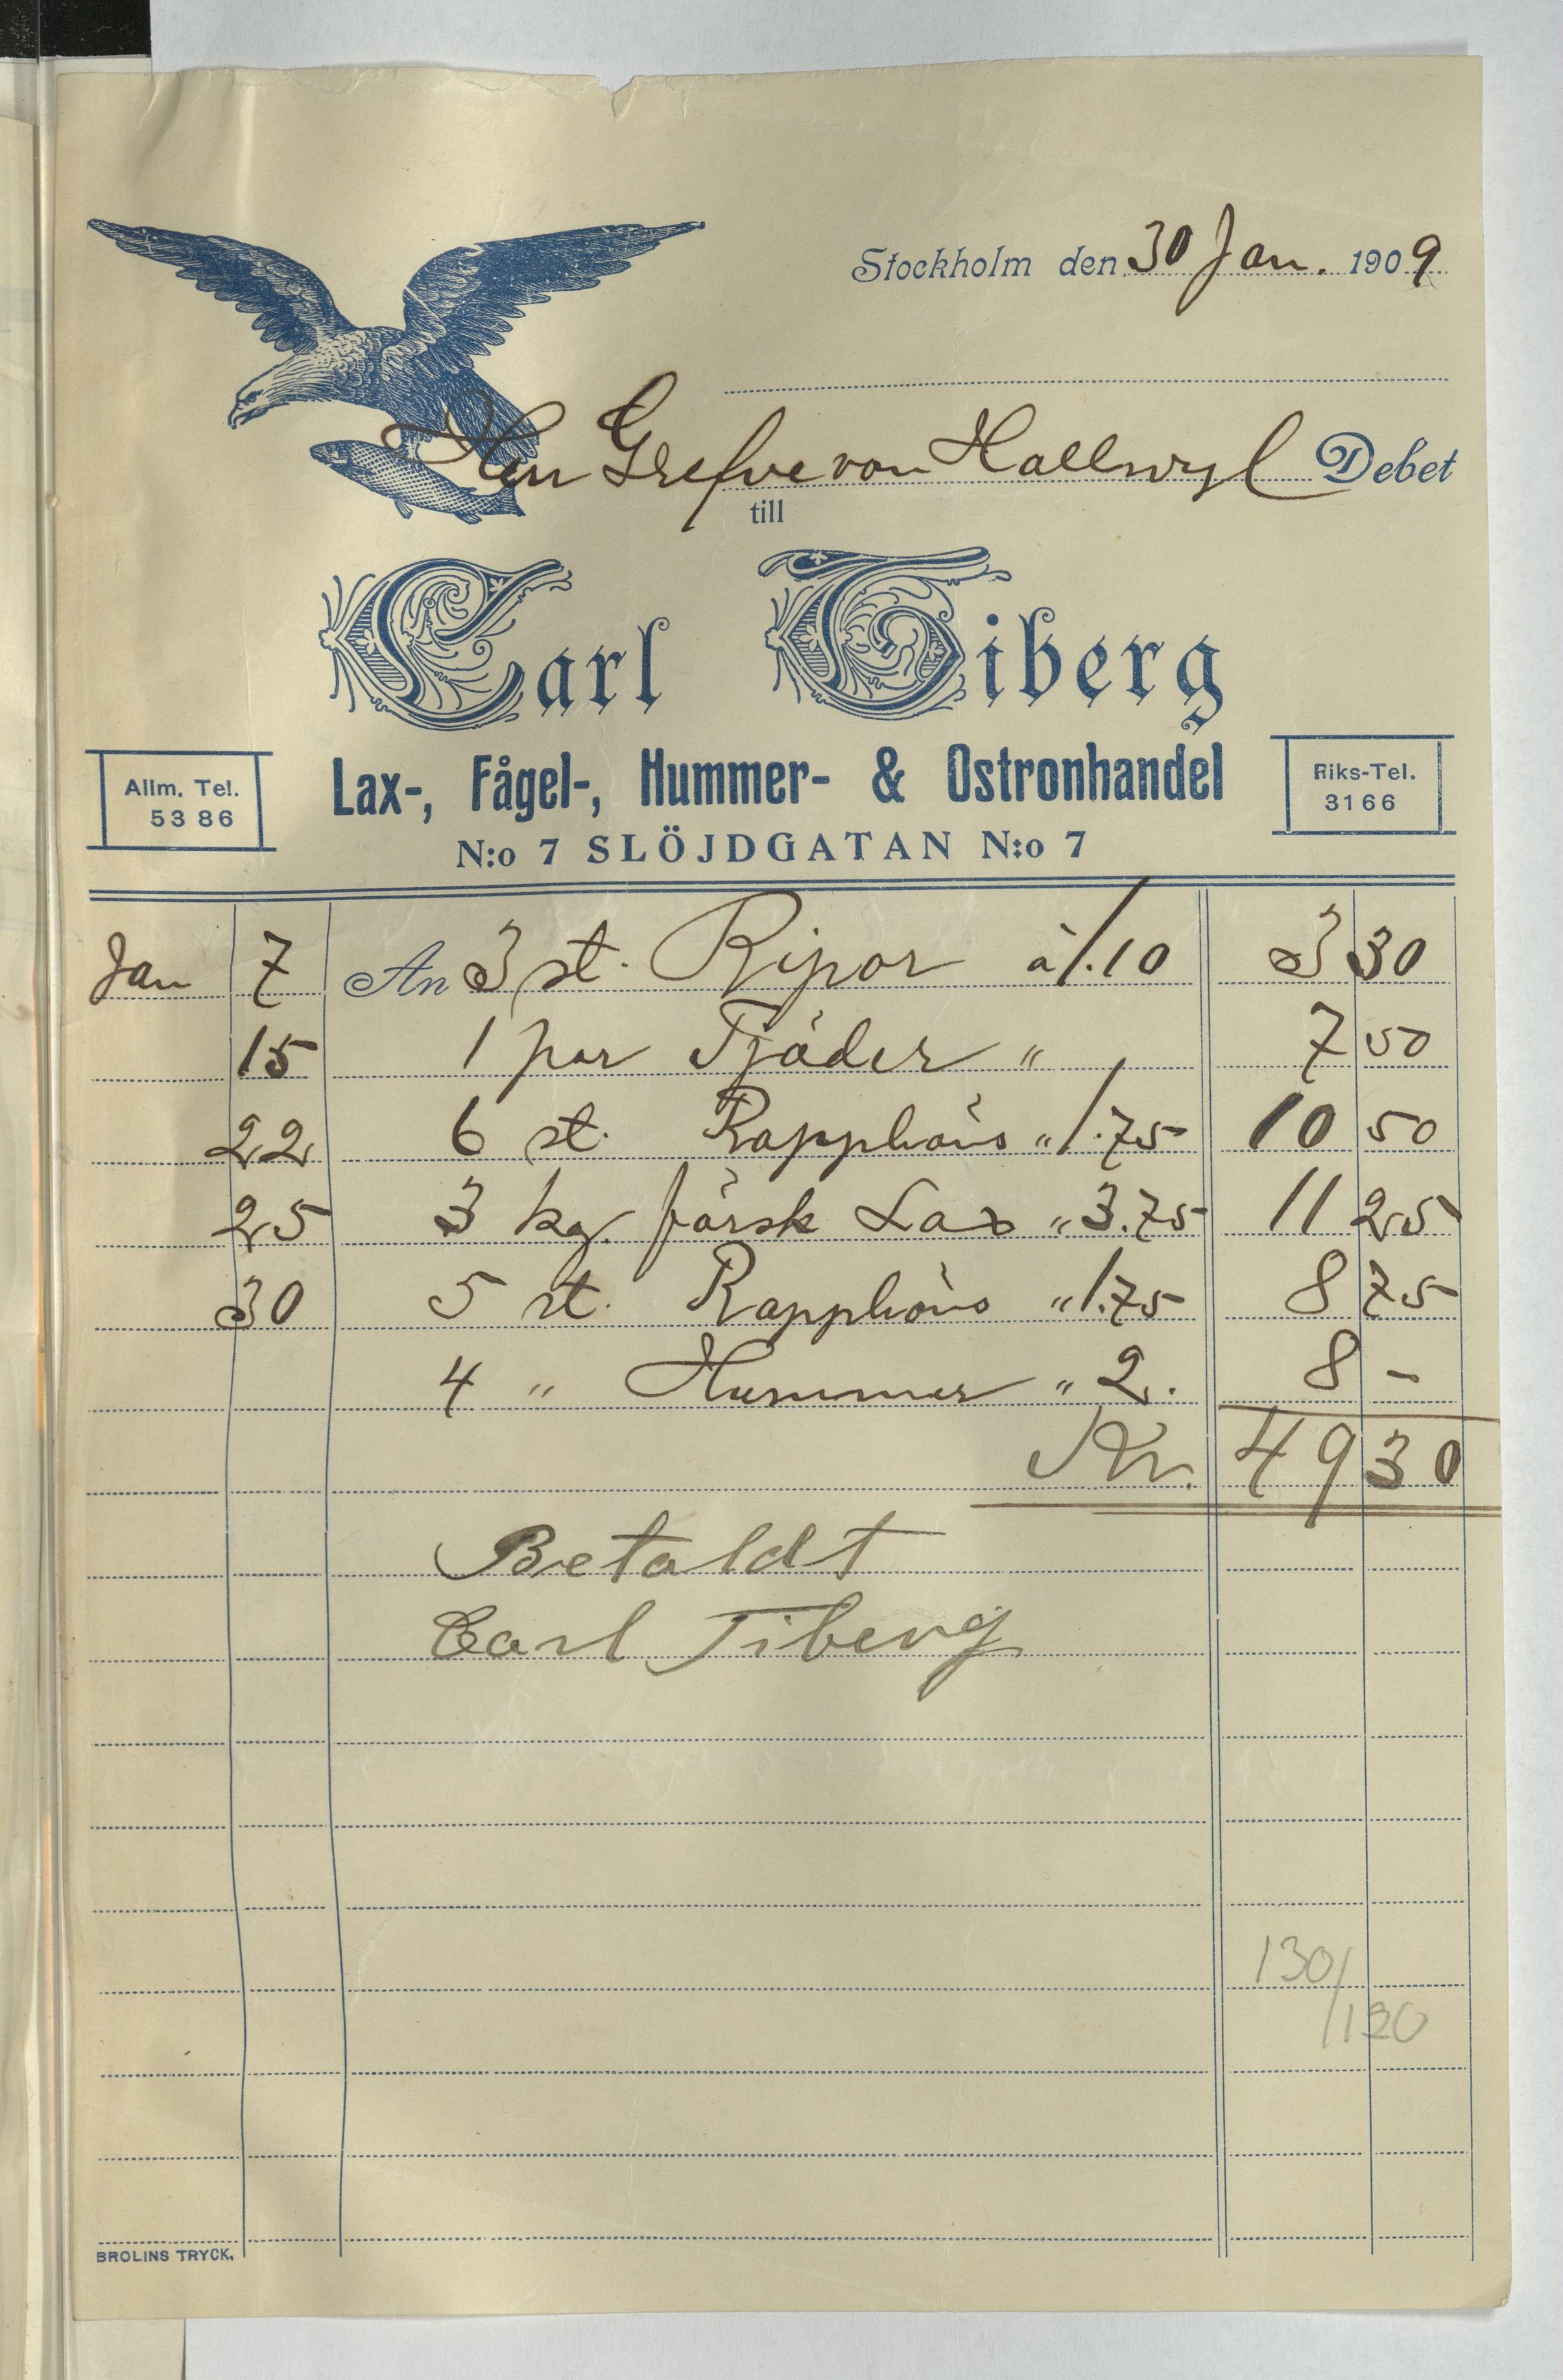 Stockholm den 30 Jan. 1909
Herr Grefve von Hallwyl Debet
till
Carl Tiberg
Allm. Tel. 5386
Lax-, Fågel-, Hummer- & Ostronhandel
Riks-Tel. 3166
N:o 7 SLÖJDGATAN N:o 7
Jan 7 An 3 st. Ripor à 1.10 3 30
15 1 par Tjäder " 7 50
22 6 st. Rapphöns " 1.75 10 50
25 3 kg. färsk Lax " 3.75 11 25
30 5 st. Rapphöns " 1.75 8 75
4 " Hummer " 2. 8 -
Kr. 49 30
Betaldt
Carl Tiberg
130/
/120
BROLINS TRYCK.